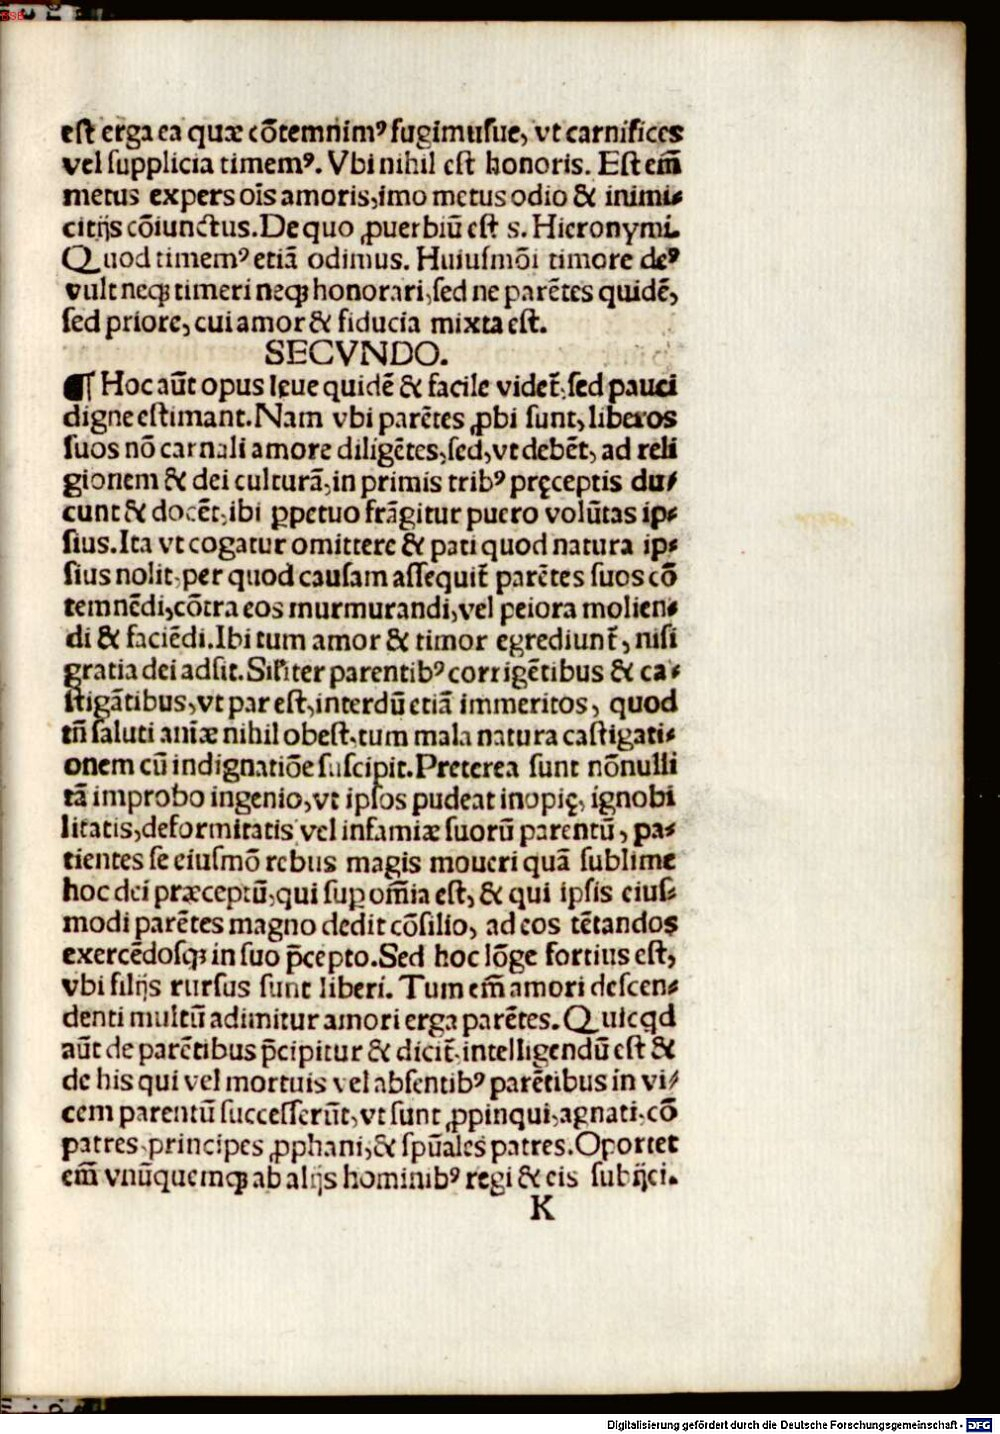 BSB
est erga ea quæ cõtemnimꝰ fugimusue, vt carnifices
vel supplicia timemꝰ. Vbi nihil est honoris. Est em̃
metus expers oĩs amoris, imo metus odio & inimi⸗
citijs cõiunctus. De quo ꝓuerbiũ est s. Hieronymi.
Quod timemꝰ etiã odimus. Huiusmõi timore deꝰ
vult neqꝫ timeri neqꝫ honorari, sed ne parẽtes quidẽ,
sed priore, cui amor & fiducia mixta est.
SECVNDO.
¶ Hoc aũt opus lęue quidẽ & facile videt̃, sed pauci
digne estimant. Nam vbi parẽtes ꝓbi sunt, liberos
suos nõ carnali amore diligẽtes, sed, vt debẽt, ad reli
gionem & dei culturã, in primis tribꝰ pręceptis du⸗
cunt & docẽt, ibi ꝑpetuo frãgitur puero volũtas ip⸗
sius. Ita vt cogatur omittere & pati quod natura ip⸗
sius nolit, per quod causam assequit̃ parẽtes suos cõ
temnẽdi, cõtra eos murmurandi, vel peiora molien⸗
di & faciẽdi. Ibi tum amor & timor egrediunt̃, nisi
gratia dei adsit. Sil̃iter parentibꝰ corrigẽtibus & ca⸗
stigãtibus, vt par est, interdũ etiã immeritos, quod
tñ saluti aniæ nihil obest, tum mala natura castigati⸗
onem cũ indignatiõe suscipit. Preterea sunt nõnulli
tã improbo ingenio, vt ipsos pudeat inopię, ignobi
litatis, deformitatis vel infamiæ suorũ parentũ, pa⸗
tientes se eiusmõ rebus magis moueri quã sublime
hoc dei præceptũ, qui suꝑ om̃ia est, & qui ipsis eius⸗
modi parẽtes magno dedit cõsilio, ad eos tẽtandos
exercẽdosqꝫ in suo p̃cepto. Sed hoc lõge fortius est,
vbi filijs rursus sunt liberi. Tum em̃ amori descen⸗
denti multũ adimitur amori erga parẽtes. Quicqd
aũt de parẽtibus p̃cipitur & dicit̃, intelligendũ est &
de his qui vel mortuis vel absentibꝰ parẽtibus in vi⸗
cem parentũ successerũt, vt sunt ꝓpinqui, agnati, cõ
patres, principes ꝓphani, & spũales patres. Oportet
em̃ vnũquemqꝫ ab alijs hominibꝰ regi & eis subijci.
K
Digitalisierung gefördert durch die Deutsche Forschungsgemeinschaft - DFG